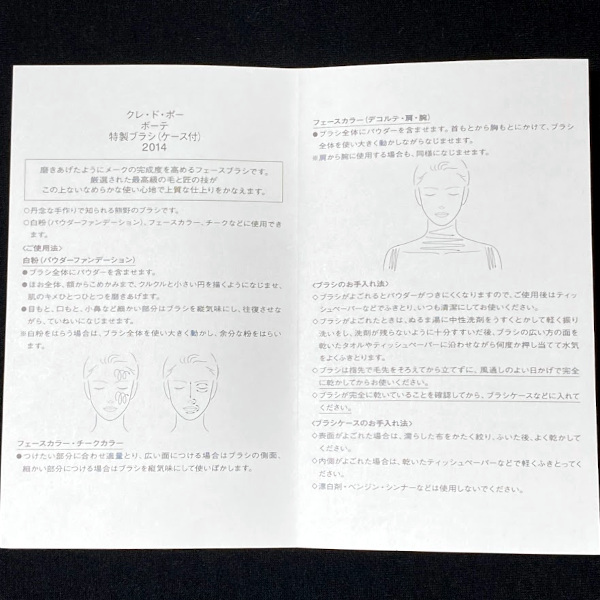 クレ・ド・ポー
ボーテ
特製ブラシ(ケース付)
2014
磨きあげたようにメークの完成度を高めるフェースブラシです。
厳選された最高級の毛と匠の技が
この上ないなめらかな使い心地で上質な仕上りをかなえます。
◇丹念な手作りで知られる熊野のブラシです。
◇白粉(パウダーファンデーション)、フェースカラー、チークなどに使用でき
ます。
〈ご使用法〉
白粉(パウダーファンデーション)
●ブラシ全体にパウダーを含ませます。
●ほお全体、額からこめかみまで、クルクルと小さい円を描くようになじませ、
肌のキメひとつひとつを磨きあげます。
●目もと、口もと、小鼻など細かい部分はブラシを縦気味にし、往復させな
がら、ていねいになじませます。
※白粉をはらう場合は、ブラシ全体を使い大きく動かし、余分な粉をはらい
ます。
フェースカラー・チークカラー
●つけたい部分に合わせ適量とり、広い面につける場合はブラシの側面、
細かい部分につける場合はブラシを縦気味にして使いぼかします。
フェースカラー(デコルテ・肩・腕)
●ブラシ全体にパウダーを含ませます。首もとから胸もとにかけて、ブラシ
全体を使い大きく動かしながらなじませます。
※肩から腕に使用する場合も、同様になじませます。
〈ブラシのお手入れ法〉
◇ブラシがよごれるとパウダーがつきにくくなりますので、ご使用後はティッ
シュペーパーなどでふきとり、いつも清潔にしてお使いください。
◇ブラシがよごれたときは、ぬるま湯に中性洗剤をうすくとかして軽く振り
洗いをし、洗剤が残らないように十分すすいだ後、ブラシの広い方の面を
乾いたタオルやティッシュペーパーに沿わせながら何度か押し当てて水気
をよくふきとります。
◇ブラシは指先で毛先をそろえてから立てずに、風通しのよい日かげで完全
に乾かしてからお使いください。
◇ブラシが完全に乾いていることを確認してから、ブラシケースなどに入れて
ください。
〈ブラシケースのお手入れ法〉
◇表面がよごれた場合は、濡らした布をかたく絞り、ふいた後、よく乾かして
ください。
◇内側がよごれた場合は、乾いたティッシュペーパーなどで軽くふきとってく
ださい。
◇漂白剤・ベンジン・シンナーなどは使用しないでください。